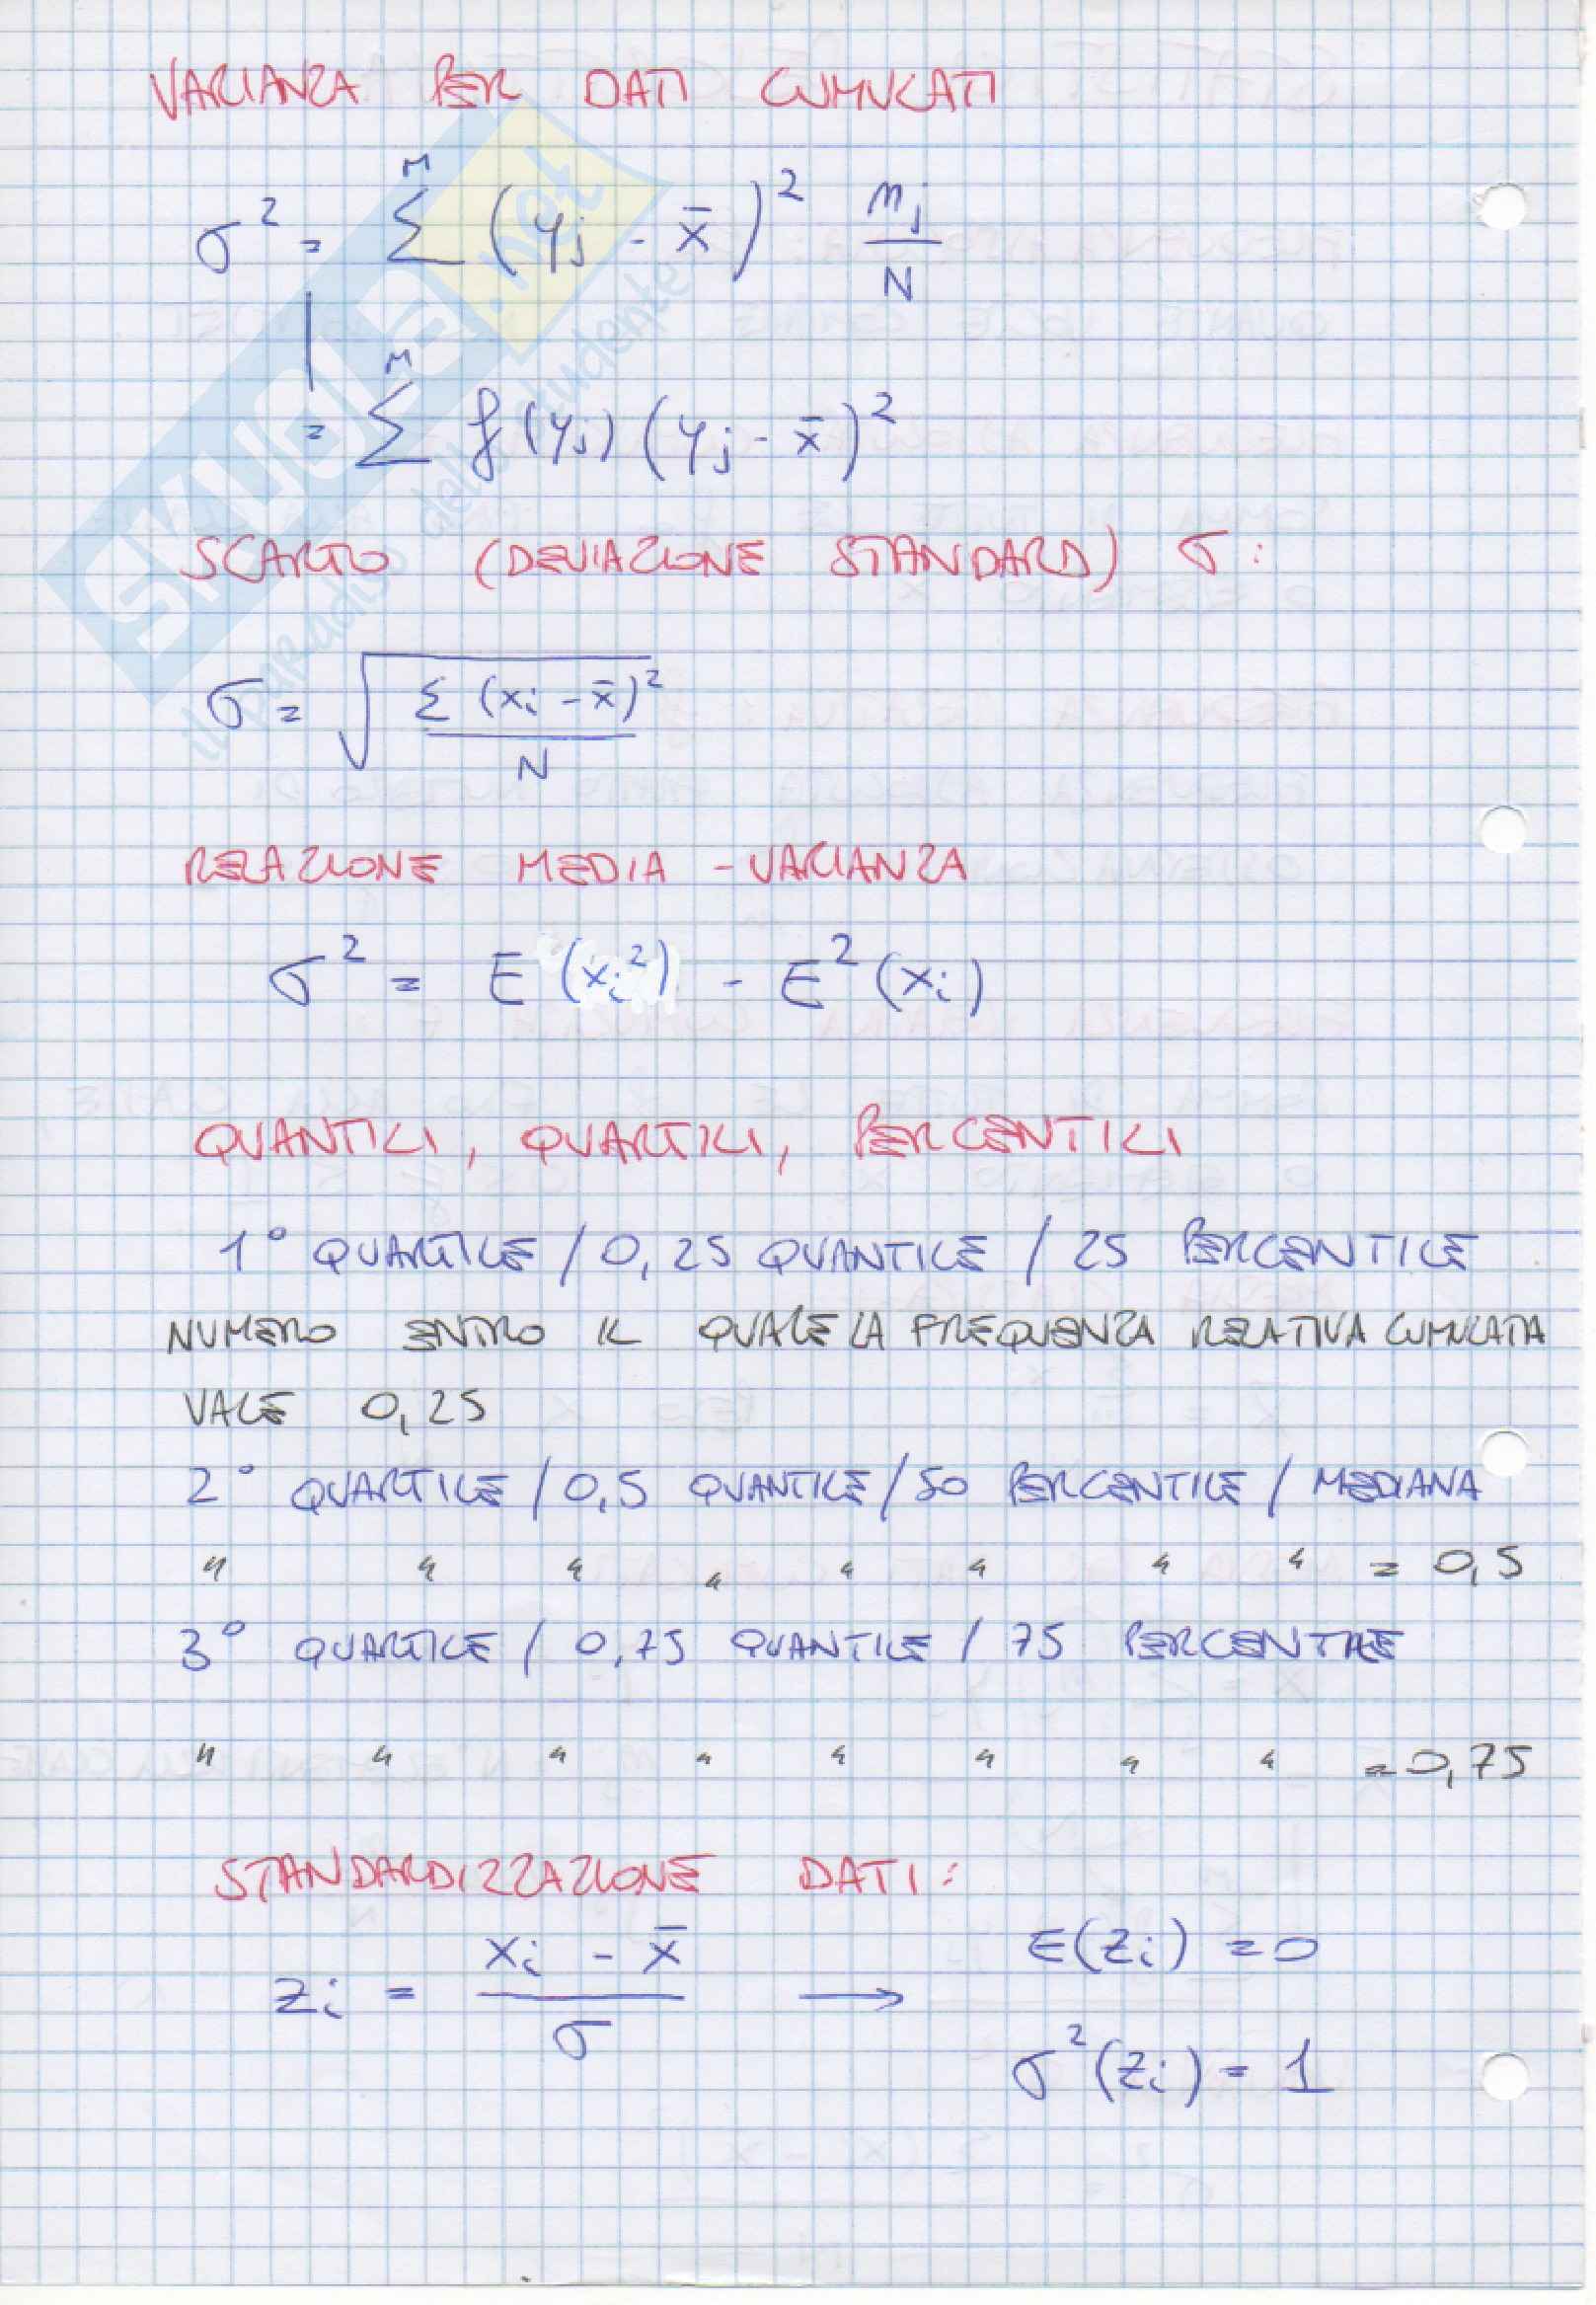 VARIANZA PER DATI CUMULATI
σ² = Σ^M (yj - x̄)² mj/N
= Σ^M f(yj) (yj - x̄)²
SCARTO (DEVIAZIONE STANDARD) σ:
σ = √(Σ (xi - x̄)² / N)
RELAZIONE MEDIA - VARIANZA
σ² = E (xi²) - E² (xi)
QUANTILI, QUARTILI, PERCENTILI
1° QUARTILE / 0,25 QUANTILE / 25 PERCENTILE
NUMERO ENTRO IL QUALE LA FREQUENZA RELATIVA CUMULATA
VALE 0,25
2° QUARTILE / 0,5 QUANTILE / 50 PERCENTILE / MEDIANA
" " " " " " " " = 0,5
3° QUARTILE / 0,75 QUANTILE / 75 PERCENTILE
" " " " " " " " = 0,75
STANDARDIZZAZIONE DATI:
zi = (xi - x̄) / σ → E(zi) = 0
σ²(zi) = 1
SKUOLA.net
il paradiso dello studente